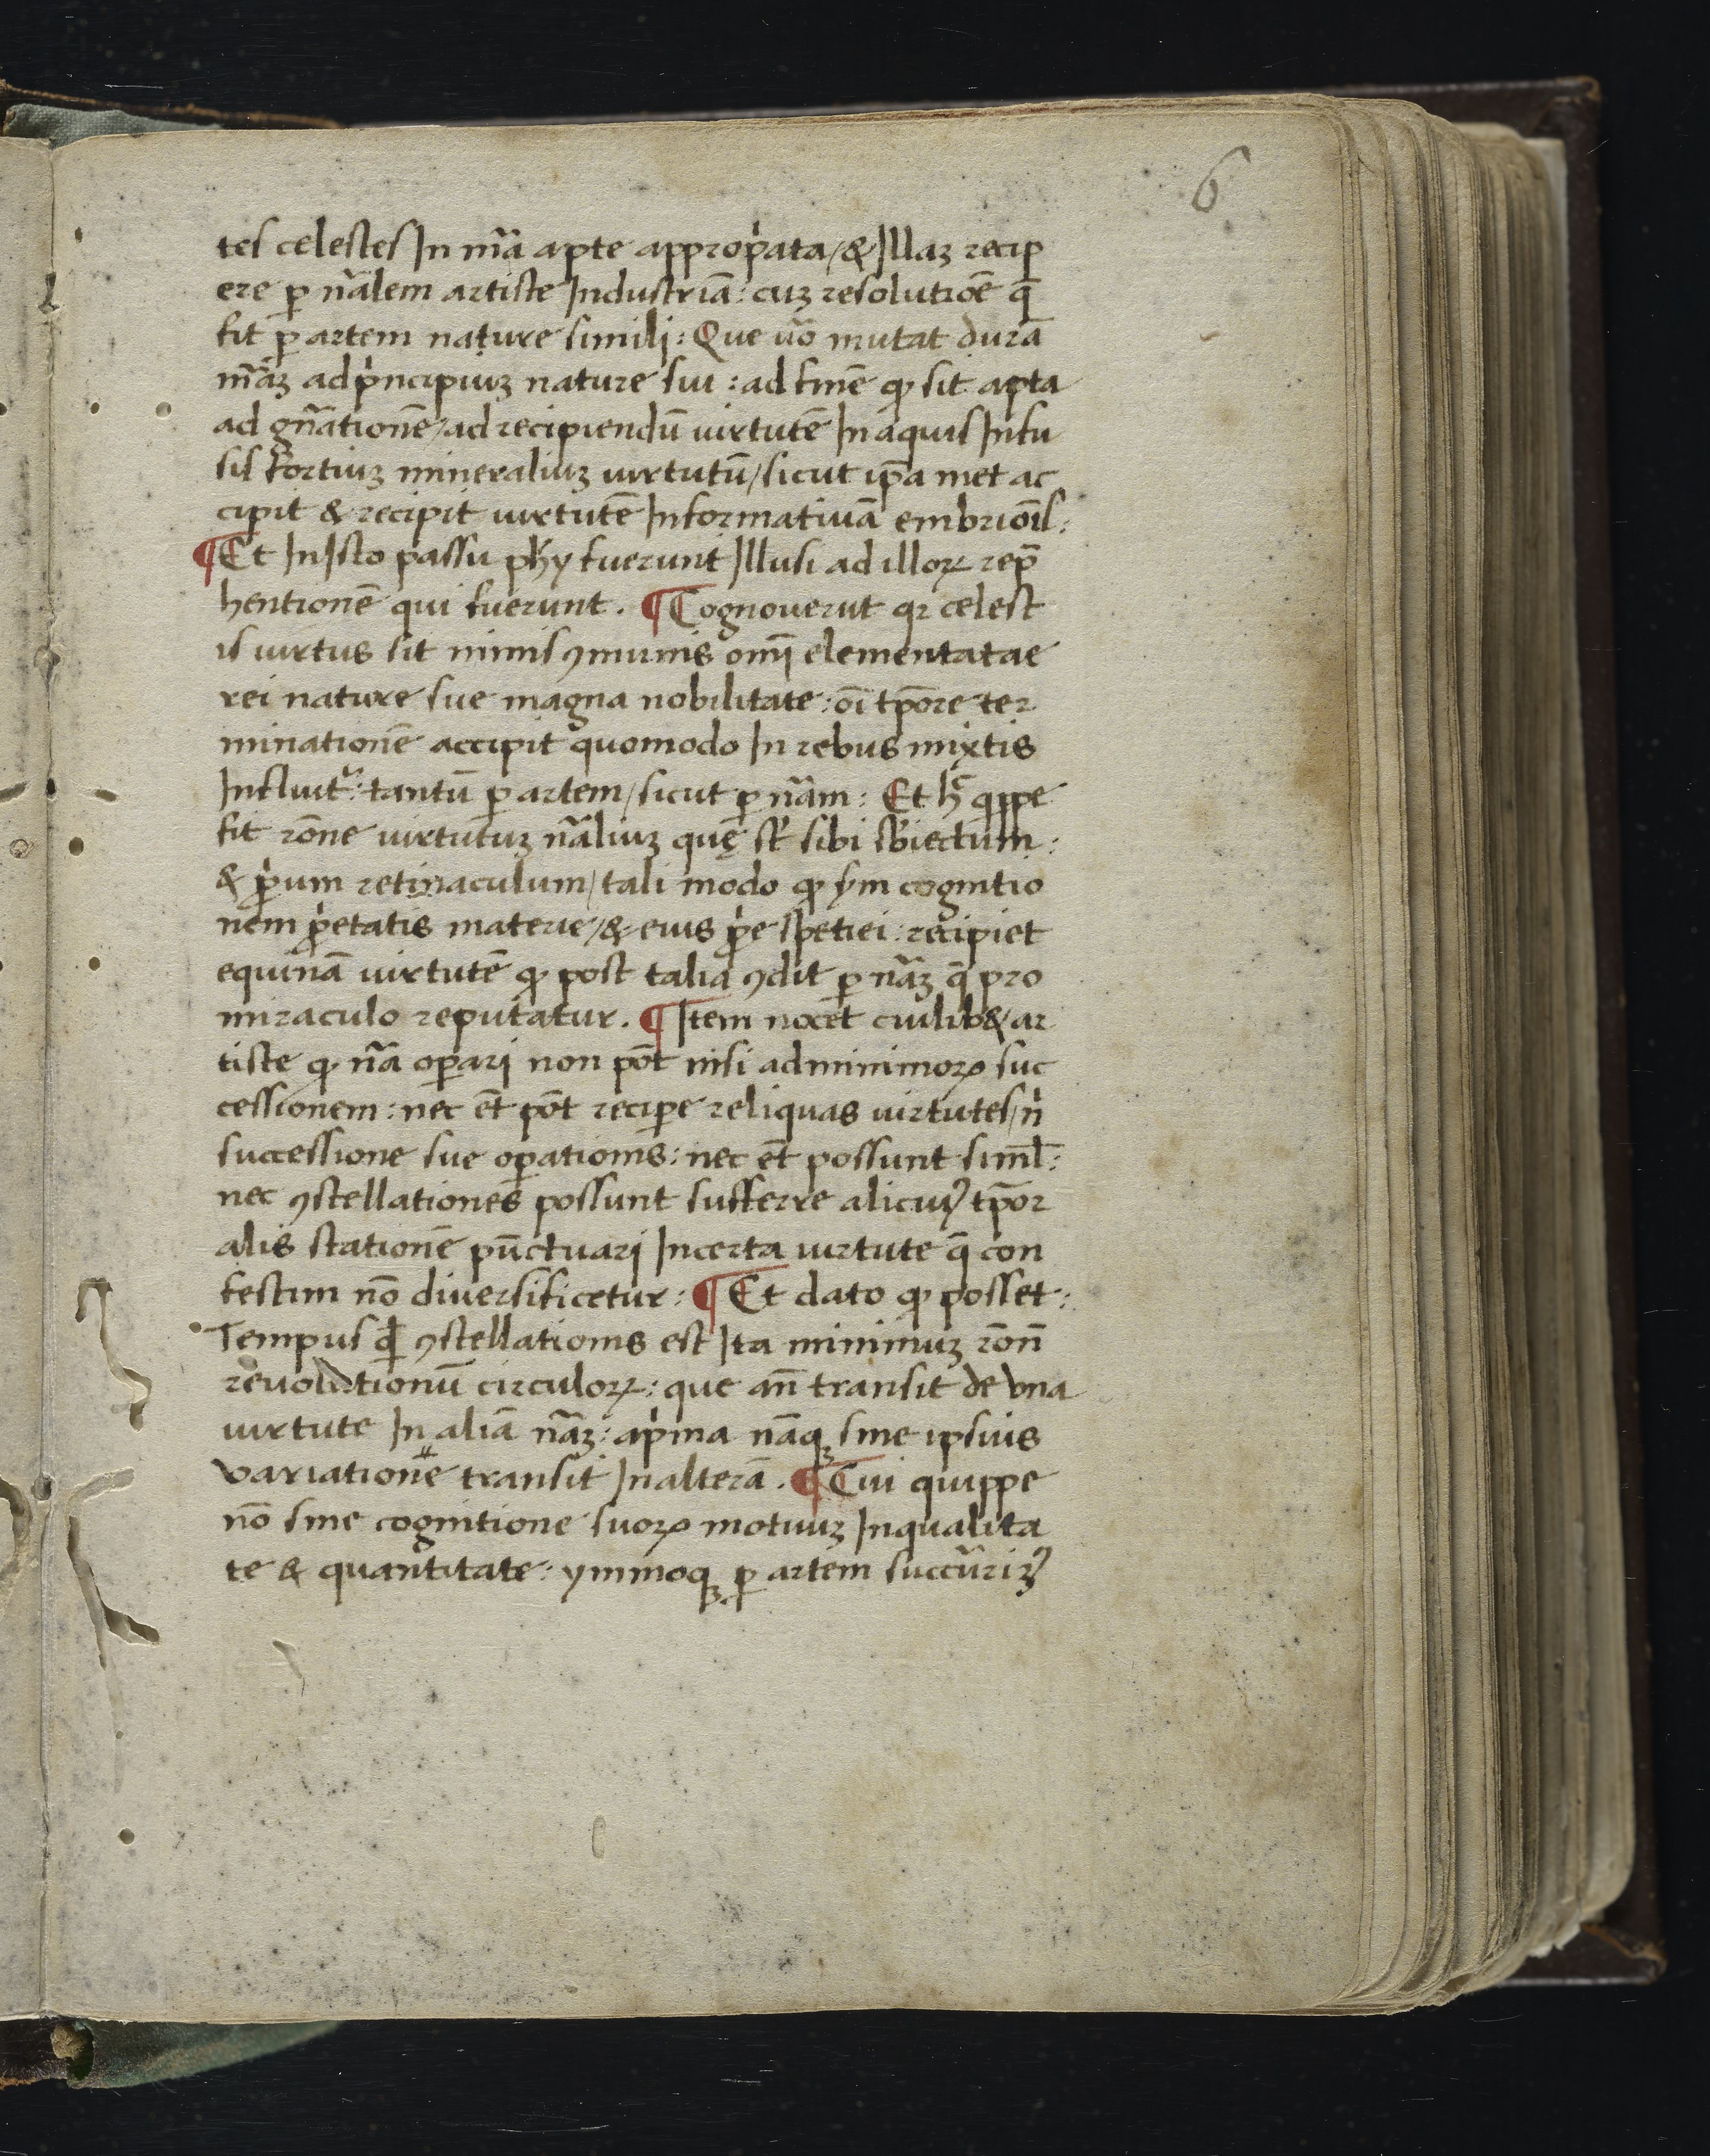 6
tes celestes In mãa apte approp̍ata / & Illaz recip
ere ꝑ nãlem artiste Industriã : cuz resolutiõe q̃
fit ꝑ artem nature simili : Que ũo mutat durã
mãz ad p̍ncipiuz nature sui : ad finẽ ꝙ sit apta
ad gñationẽ / ad recipiendũ uirtutẽ In aquis Infu
sis fortiuz mineraliuz uirtutũ / sicut ip̃a met ac
cipit & recipit uirtutẽ Informatiuã embriõis :
¶ Et In Isto passu phỹ fuerunt Illusi ad illoꝝ rep̃
hentionẽ qui fuerunt . ¶ Cognouerũt qꝛ celest
is uirtus sit nimis ꝯmunis omĩ elementatae
rei nature sue magna nobilitate : oĩ tp̃ore ter
minationẽ accipit quomodo In rebus mixtis
Influit᷑ : tantũ ꝑ artem / sicut ꝑ nãm : Et h̃c qppe
fit rõne uirtutuz nãliuz quę st̃ sibi sb̃iectum :
& p̍um retinaculum / tali modo ꝙ ẜm cognitio
nem p̍etatis materie / & eius p̍e spetiei : recipiet
equinã uirtutẽ ꝙ post talia ꝯdit ꝑ nãz q̃ pro
miraculo reputatur . ¶ Item nocet ciuilib & ar
tiste ꝙ nã oꝑari non põt nisi ad minimoꝝ suc
cessionem : nec ẽt põt reciꝑe reliquas uirtutes / n̍
successione sue oꝑationis : nec ẽt possunt siml̃ :
nec ꝯstellationes possunt sufferre alicuiꝰ tp̃or
alis stationẽ pũctuari Incerta uirtute q̃ con
festim nõ diuersificetur : ¶ Et dato ꝙ posset :
Tempus ꝗ ꝯstellationis est Ita minimuz rõn̄
reuolutionũ circuloꝝ : que añ transit de una
uirtute In aliã nãz : a p̍ma nãqꝫ sine ipsius
variatione transit In alterã . ¶ Cui quippe
nõ sine cognitione suoꝝ motuuz In qualita
te & quantitate : ymmoqꝫ ꝑ artem succũrimꝰ